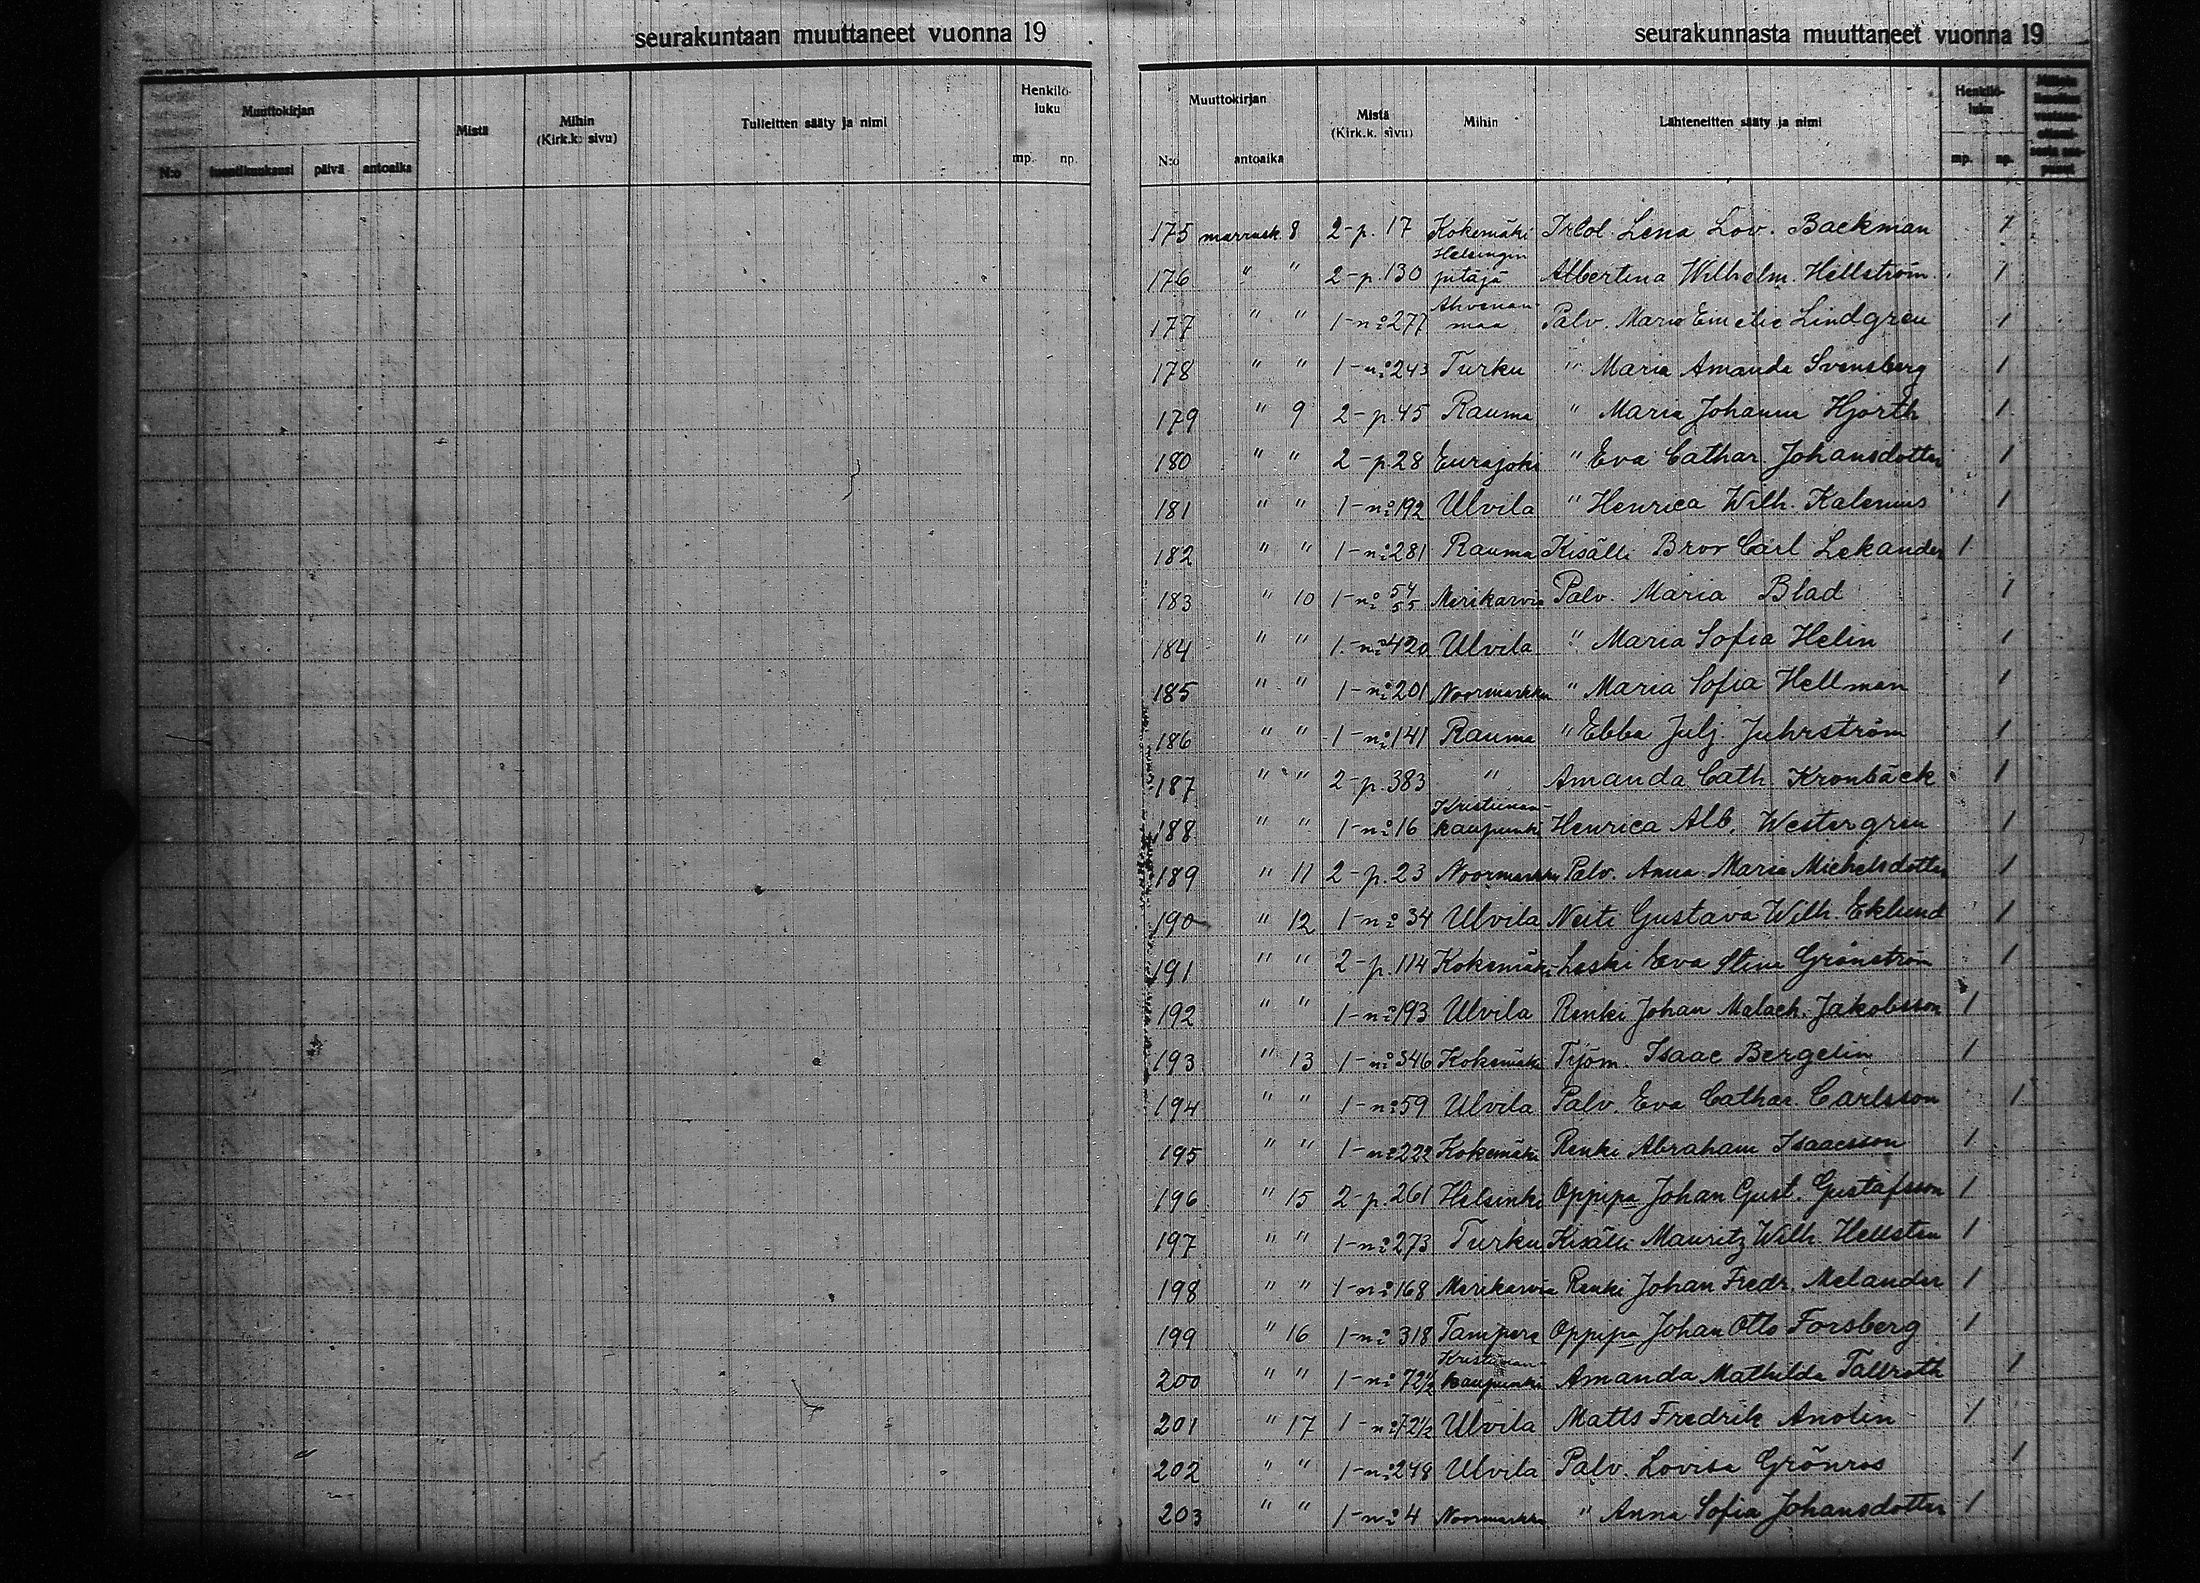 seurakuntaan muuttaneet vuonna 19
Muuttokirjan
Mistä
Mihin
(Kirk.k. sivu)
Tulleitten sääty ja nimi
Henkilö-
luku
N:o päivä antoaika
mp. np.
seurakunnasta muuttaneet vuonna 19
Muuttokirjan
Mistä
(Kirk.k. sivu)
Mihin
Lähteneitten sääty ja nimi
Henkilö-
luku
N:o antoaika
mp. np.
175 marrask. 8 2-p. 17 Kokemäki Lena Lov. Backman 1
176 " " 2-p. 130 Helsingin pitäjä Albertina Wilhelm. Hellström 1
177 " " 1-n:o 277 Ahvenan-maa Palv. Maria Emelie Lindgren 1
178 " " 1-n:o 243 Turku " Maria Amanda Svensberg 1
179 " 9 2-p. 45 Rauma " Maria Johanna Hjorth 1
180 " " 2-p. 28 Eurajoki " Eva Cathar. Johansdotter 1
181 " " 1-n:o 192 Ulvila " Henrica Wilh. Kalenius 1
182 " " 1-n:o 281 Rauma Kisälli Bror Carl Lekander 1
183 " 10 1-n:o 54 55 Merikarvia Palv. Maria Blad 1
184 " " 1-n:o 420 Ulvila " Maria Sofia Helin 1
185 " " 1-n:o 201 Noormarkku " Maria Sofia Hellman 1
186 " " 1-n:o 141 Rauma " Ebba Julj. Juhrström 1
187 " " 2-p. 383 " Amanda Cath. Kronbäck 1
188 " " 1-n:o 16 Kristiinan-kaupunki Henrica Alb. Westergren 1
189 " 11 2-p. 23 Noormarkku Palv. Anna Maria Michelsdotter 1
190 " 12 1-n:o 34 Ulvila Neiti Gustava Wilh. Eklund 1
191 " " 2-p. 114 Kokemäki Leski Eva Stina Grönström 1
192 " " 1-n:o 193 Ulvila Renki Johan Malach. Jakobsson 1
193 " 13 1-n:o 346 Kokemäki Työm. Isaac Bergelin 1
194 " " 1-n:o 59 Ulvila Palv. Eva Cathar. Carlsson 1
195 " " 1-n:o 222 Kokemäki Renki Abraham Isaacsson 1
196 " 15 2-p. 261 Helsinki Oppipa Johan Gust. Gustafsson 1
197 " " 1-n:o 273 Turku Kisälli Mauritz Wilh. Hellsten 1
198 " " 1-n:o 168 Merikarvia Renki Johan Fredr. Melander 1
199 " 16 1-n:o 318 Tampere Oppipa Johan Otto Forsberg 1
200 " " 1-n:o 72½ Kristiinan-kaupunki Amanda Mathilda Tallroth 1
201 " 17 1-n:o 72½ Ulvila Matts Fredrik Anolin 1
202 " " 1-n:o 248 Ulvila Palv. Lovisa Grönros 1
203 " " 1-n:o 4 Noormarkku " Anna Sofia Johansdotter 1